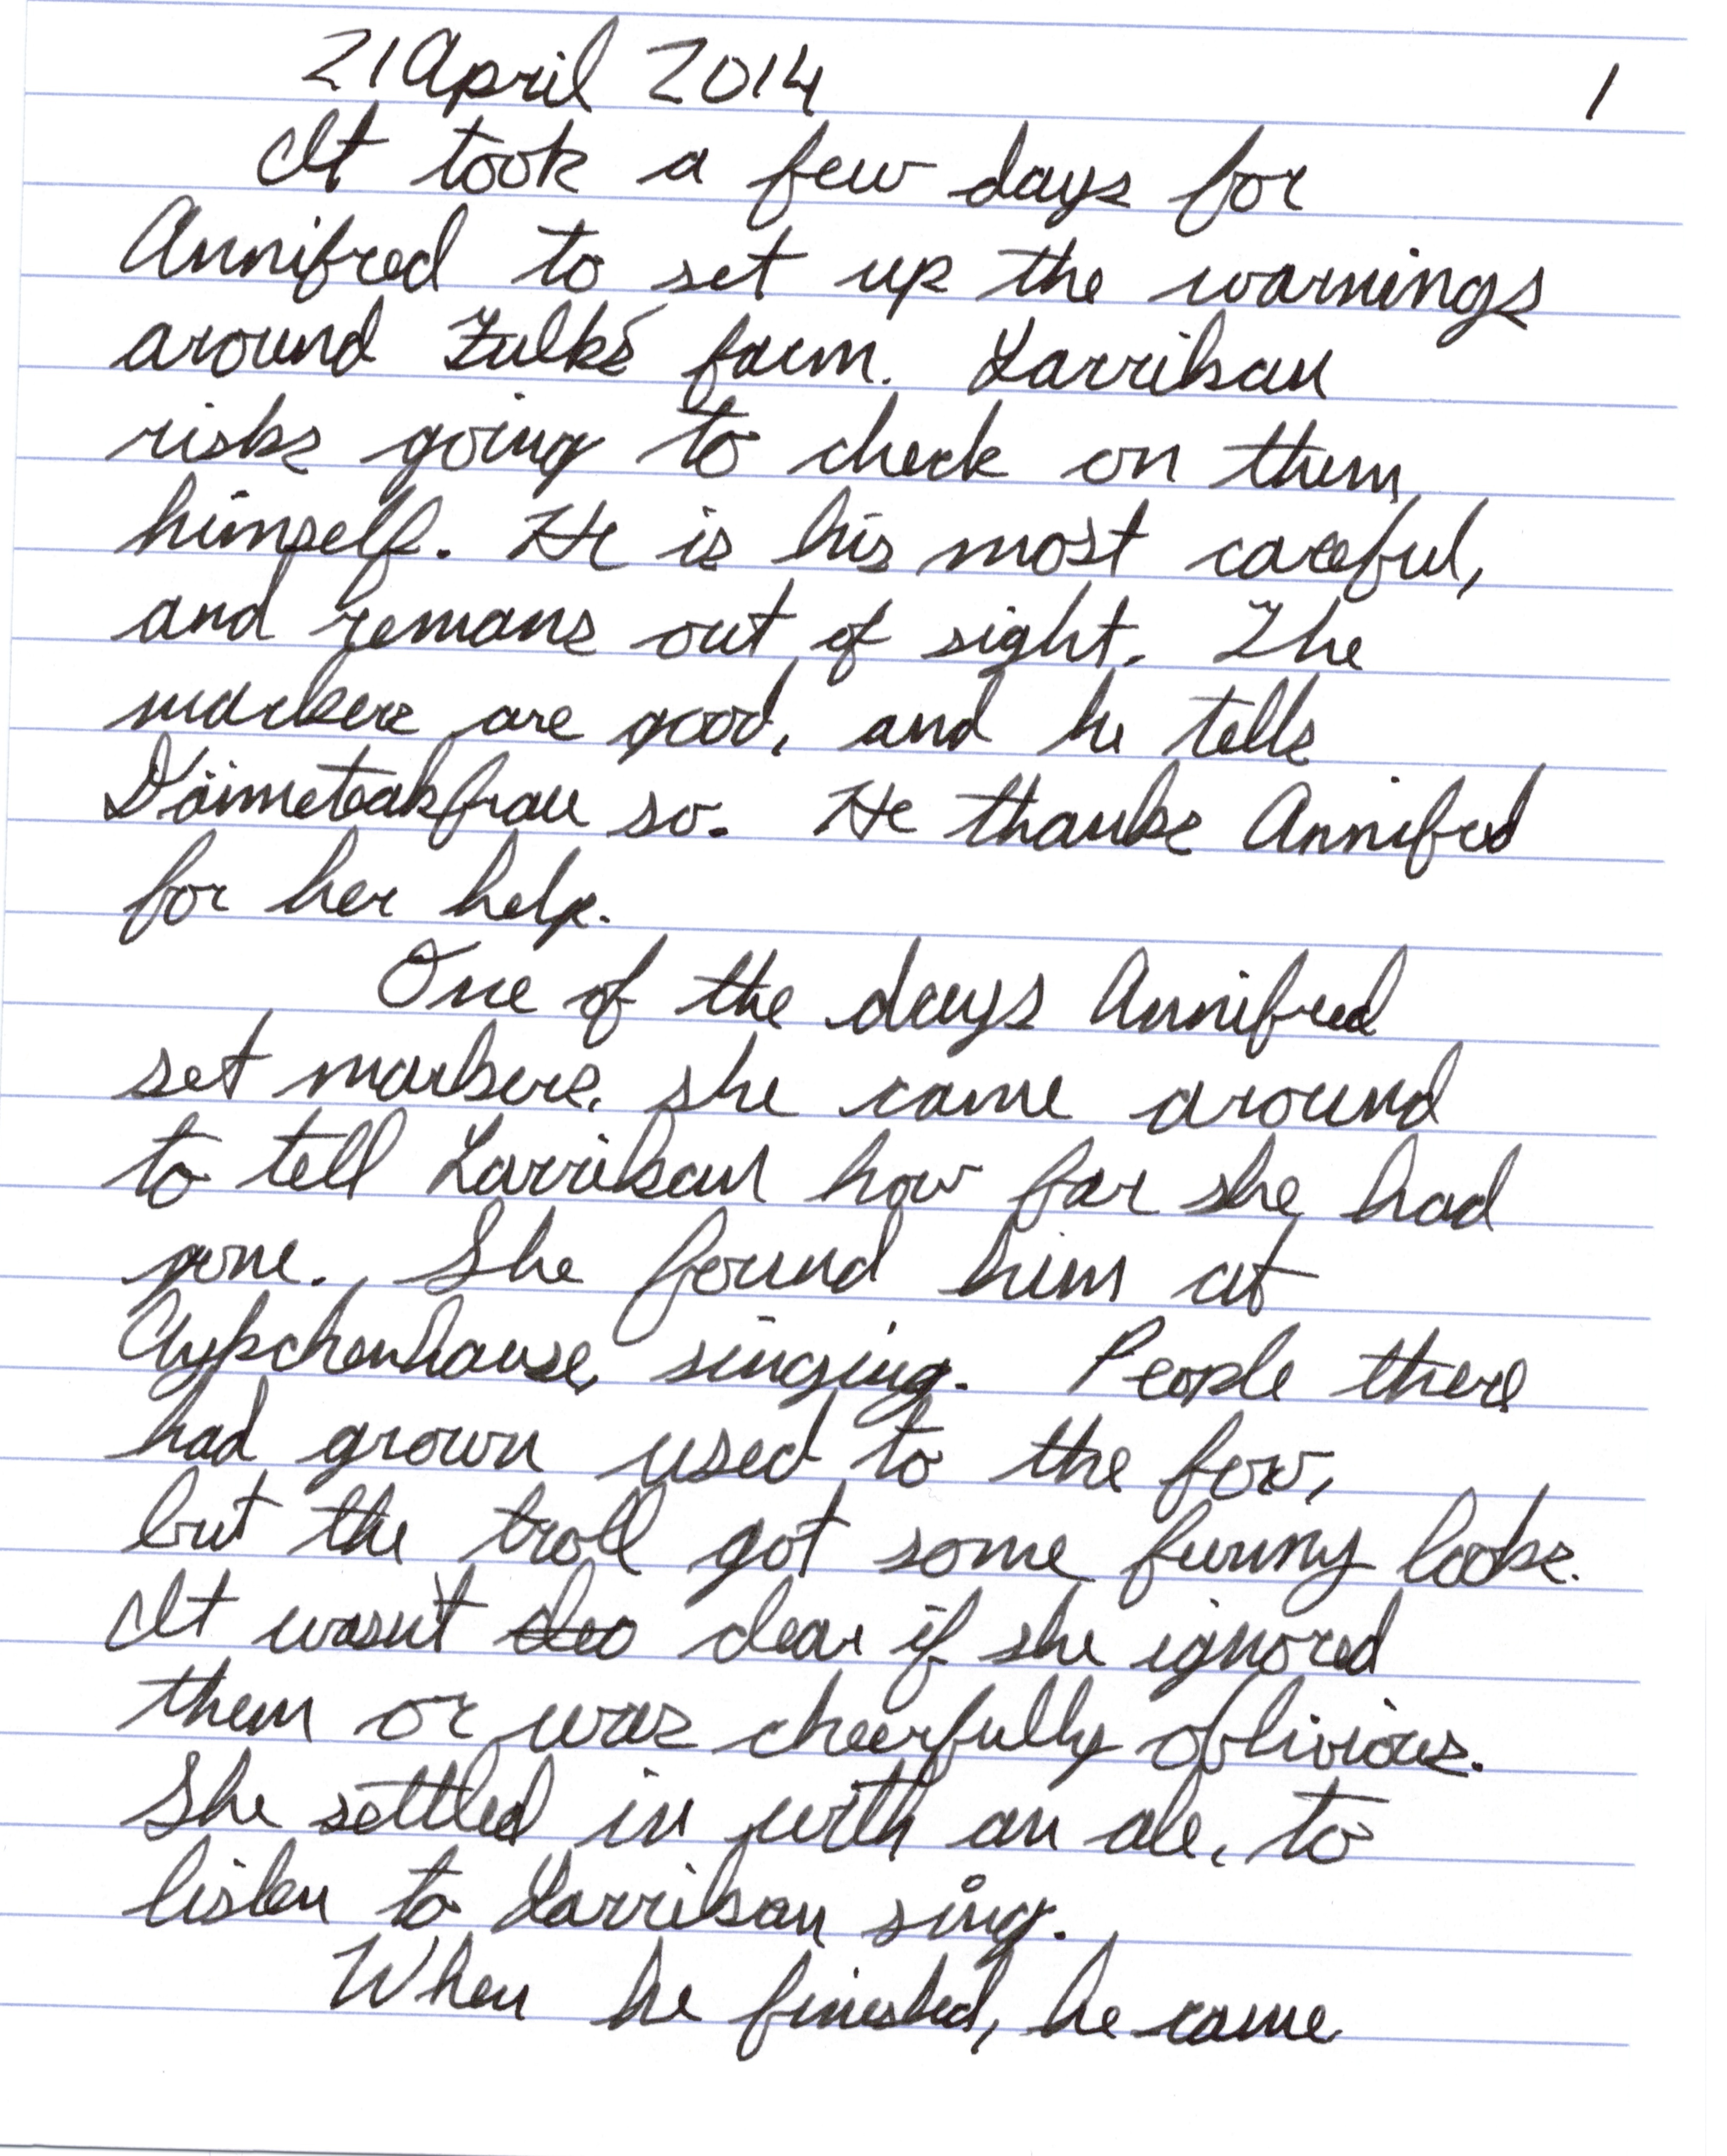 21 April 2014 1
It took a few days for
Annifred to set up the warnings
around farm. Larrikan
risks going to check on them
himself. He is his most careful,
and remans out of sight. The
markers are good, and he tells
so. He thanks Annifred
for her help.
One of the days Annifred
set markers, she came around
to tell Larrikan how far she had
gone. She found him at
singing. People there
had grown used to the fox,
but the troll got some funny looks.
It wasn't clear if she ignored
them or was cheerfully oblivious.
She settled in with an ale, to
listen to Larrikan sing.
When he finished, he came